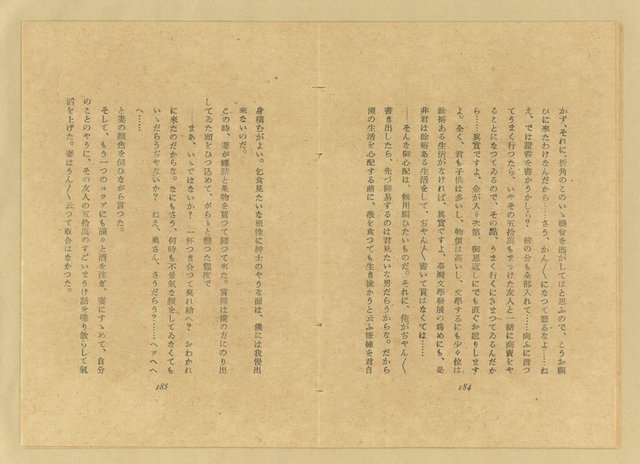 かず、それに、折角のこのいゝ機會を逃がしてはと思ふので、こうお願
ひに來たわけなんだから……さう、がん〳〵になつて怒るなよ……ね
え、では證書を書かうかしら？　前の分も全部入れて……向ふに渡つ
てうまく行つたら、いやその五拾萬もまうけた友人と一緒に商賣をや
ることになつてゐるので、その點、うまく行くにきまつてゐるんだか
ら……眞實ですよ、金が入り次第、御恩返しにでも直ぐお送りします
よ。全く、君も子供は多いし、物價は高いし、文學するにも少々位は
餘裕ある生活がなければ、眞實ですよ、臺灣文學發展の爲めにも、是
非君は餘裕ある生活をして、ぢやん〳〵書いて貰はなくては……
――そんな御心配は、無用願ひたいものだ。それに、俺がぢやん〳〵
書き出したら、先づ御易するのは君見たいな男だらうからな。だから
僕の生活を心配する前に、薇を食つても生き拔かうと云ふ修練を君自
184
身積むがよい。乞食見たいな根性に紳士のやうな面は、僕には我慢出
來ないのだ。
この時、妻が罐詰と果物を買つて歸つて來た。富岡は僕の方にのり出
してゐた頭をひつ込めて、がらりと變つた態度で
――まあ、いゝではないか？　一杯つき合つて吳れ給へ？　おわかれ
に來たのだからな。なにもさう、何時も不景氣な顏をしてゐなくても
いゝだらうぢやないか？　ねえ、奧さん、さうだらう？……ヘツヘヘ
ヘ……
と妻の顏色を伺ひながら言つた。
そして、もう一つのコツプにも滿々と酒を注ぎ、妻にすゝめて、自分
のことのやうに、その友人の五拾萬のすごいまうけ話を喋り散らして氣
焰を上げた。妻はうん〳〵云つて取合はなかつた。
185